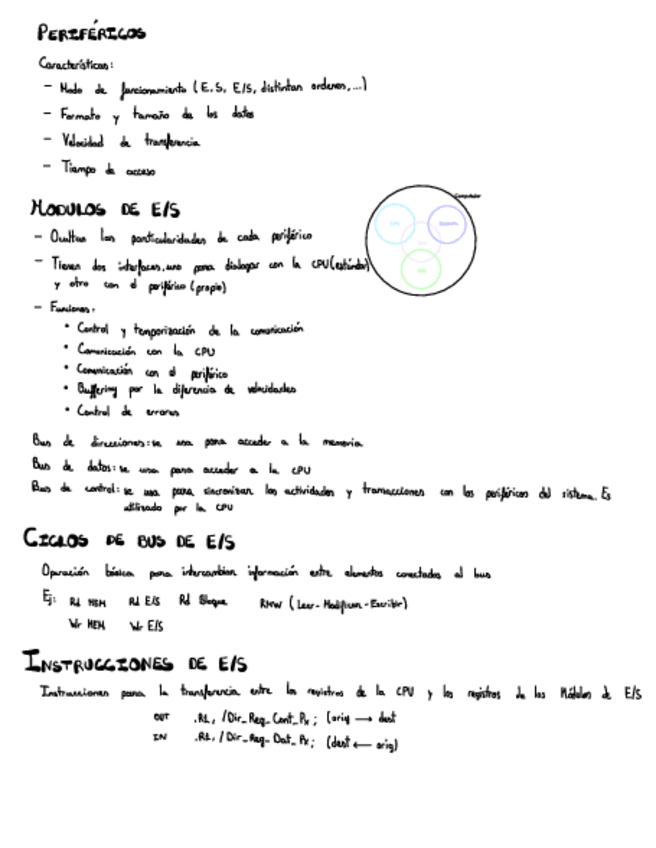 PERIFÉRICOS
Características:
- Modo de funcionamiento (E, S, E/S, distintan ordenes,...)
- Formato y tamaño de los datos
- Velocidad de transferencia
- Tiempo de acceso
MODULOS DE E/S
Computador
- Ocultan las particularidades de cada periférico
- Tienen dos interfaces, uno para dialogar con la CPU (estándar)
y otro con el periférico (propio)
- Funciones:
• Control y temporización de la comunicación
• Comunicación con la CPU
• Comunicación con el periférico
• Buffering por la diferencia de velocidades
• Control de errores
Bus de direcciones: se usa para acceder a la memoria
Bus de datos: se usa para acceder a la CPU
Bus de control: se usa para sincronizar las actividades y transacciones con los periféricos del sistema. Es
utilizado por la CPU
CICLOS DE BUS DE E/S
Operación básica para intercambiar información entre elementos conectados al bus
Ej: Rd MEM Rd E/S Rd Bloque RMW (Leer-Modificar-Escribir)
Wr MEM Wr E/S
INSTRUCCIONES DE E/S
Instrucciones para la transferencia entre los registros de la CPU y los registros de los Módulos de E/S
OUT .R1, /Dir_Reg_Cont_Px; (orig → dest
IN .R1, /Dir_Reg_Dat_Px; (dest ← orig)